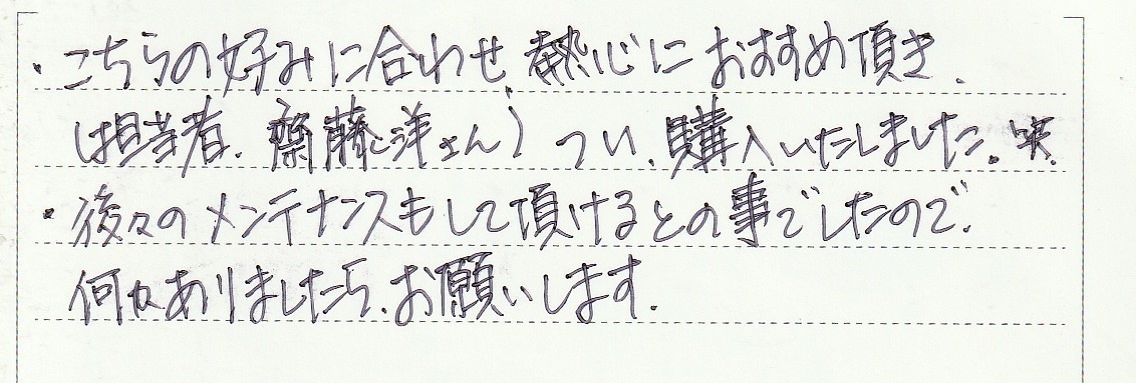 ・こちらの好みに合わせ、熱心におすすめ頂き、
(担当者、齋藤洋さん)つい、購入いたしました。笑
・後々のメンテナンスもして頂けるとの事でしたので、
何かありましたら、お願いします。